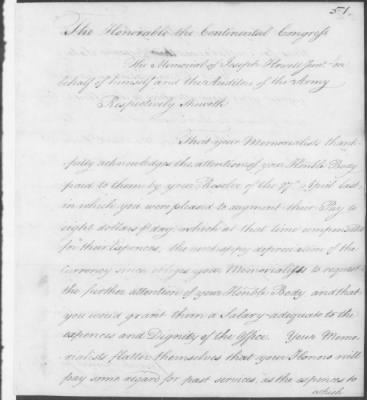 51.
The Honorable the Continental Congress
The Memorial of Joseph Howell Junr. in
behalf of himself and the Auditors of the Army
Respectively Sheweth
That your Memorialists thank-
fully acknowledge the attention of your Honble Body
paid to them by your Resolve of the 27th April last,
in which you were pleased to augment their Pay to
eight dollars day which at that time compensated
for their Expences, the unhappy depreciation of the
Currency since obliges your Memorialists to request
the further attention of your Honble Body and that
you would grant them a Salary adequate to the
expences and Dignity of the Office. Your Memo-
rialists flatter themselves that your Honors will
pay some regard for past services, as the expences to
which